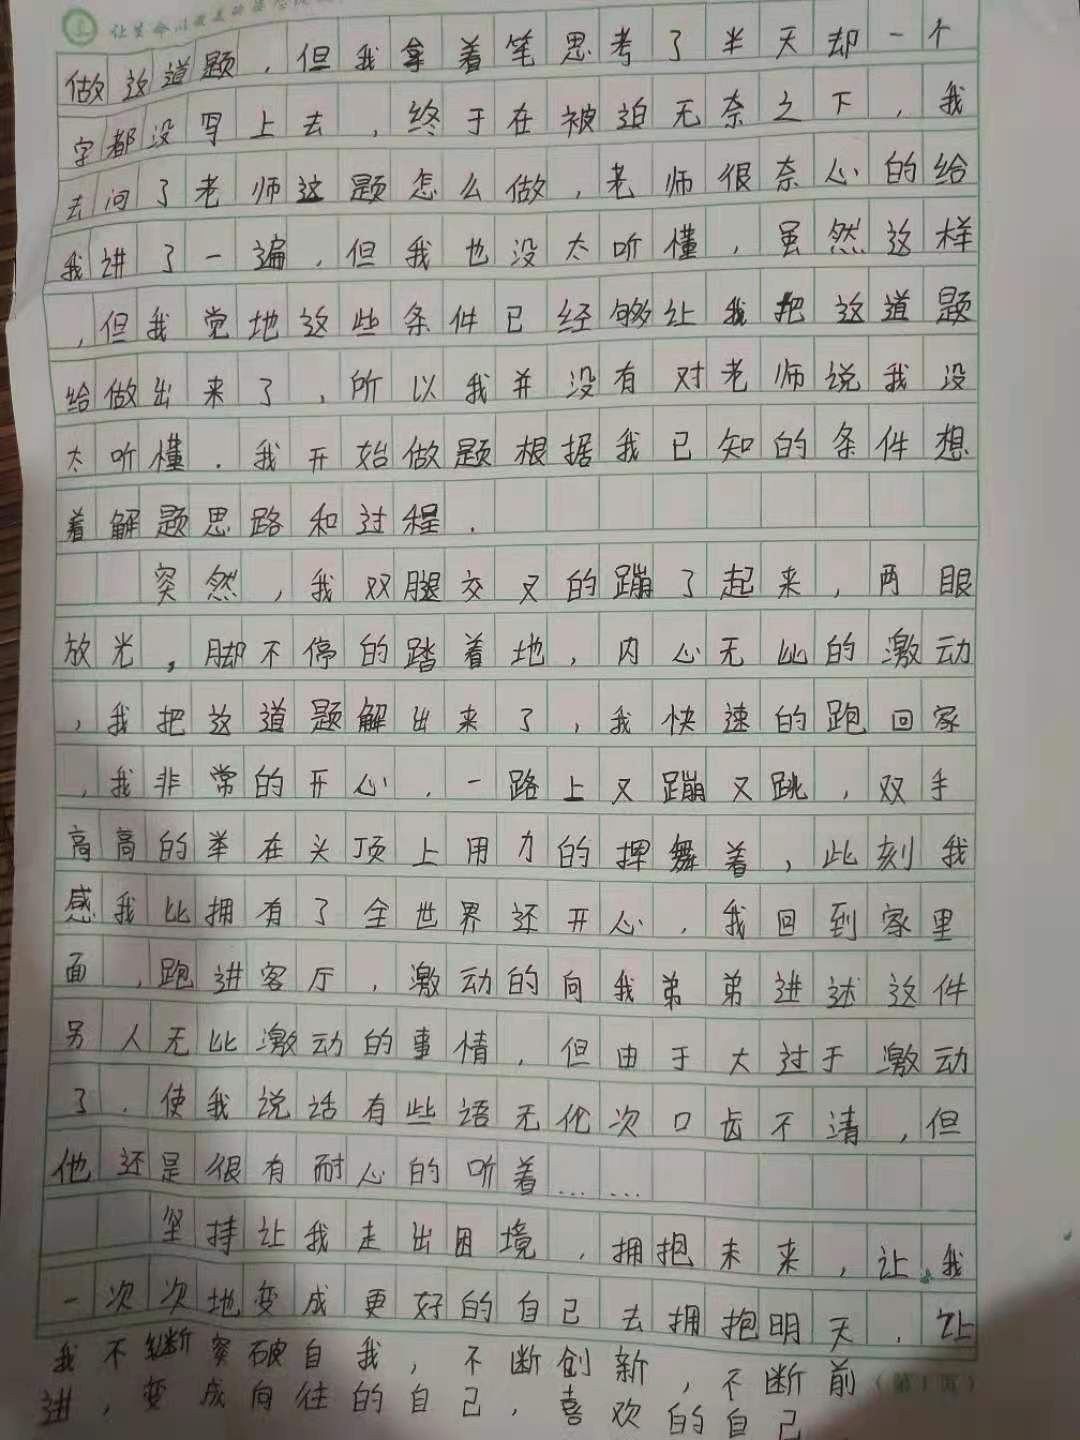 让生命以最美的
做这道题，但我拿着笔思考了半天却一个
字都没写上去，终于在被迫无奈之下，我
去问了老师这题怎么做，老师很奈心的给
我讲了一遍，但我也没太听懂，虽然这样
，但我觉地这些条件已经够让我把这道题
给做出来了，所以我并没有对老师说我没
太听懂．我开始做题根据我已知的条件想
着解题思路和过程．
突然，我双腿交叉的蹦了起来，两眼
放光，脚不停的踏着地，内心无比的激动
，我把这道题解出来了，我快速的跑回家
，我非常的开心．一路上又蹦又跳，双手
高高的举在头顶上用力的挥舞着，此刻我
感我比拥有了全世界还开心，我回到家里
面，跑进客厅，激动的向我弟弟进述这件
另人无比激动的事情，但由于大过于激动
了．使我说话有些语无伦次口齿不清，但
他还是很有耐心的听着……
坚持让我走出困境，拥抱未来，让我
一次次地变成更好的自己去拥抱明天，让
我不继断突破自我，不断创新，不断前
进，变成向往的自己，喜欢的自己
（第1页）